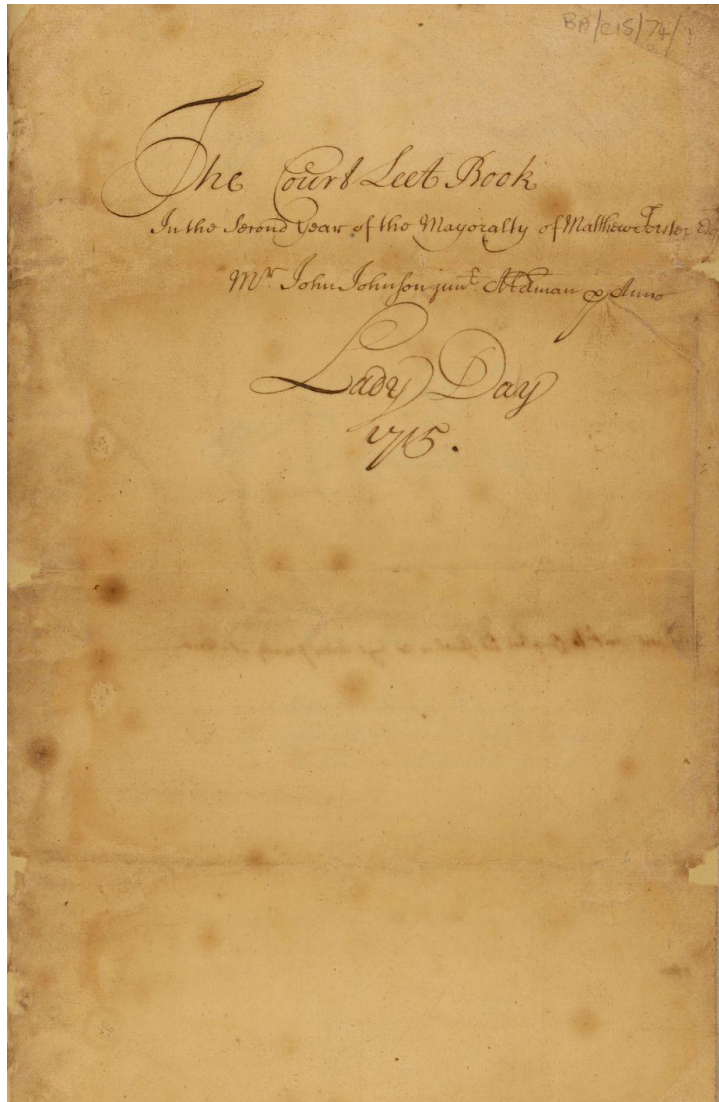 BA/C15/74/
The Court Leet Book
In the Second Year of the Mayoralty of Matthew Forster Esq
Mr John Johnson junr. Aldman p Anno
Lady Day
1715.